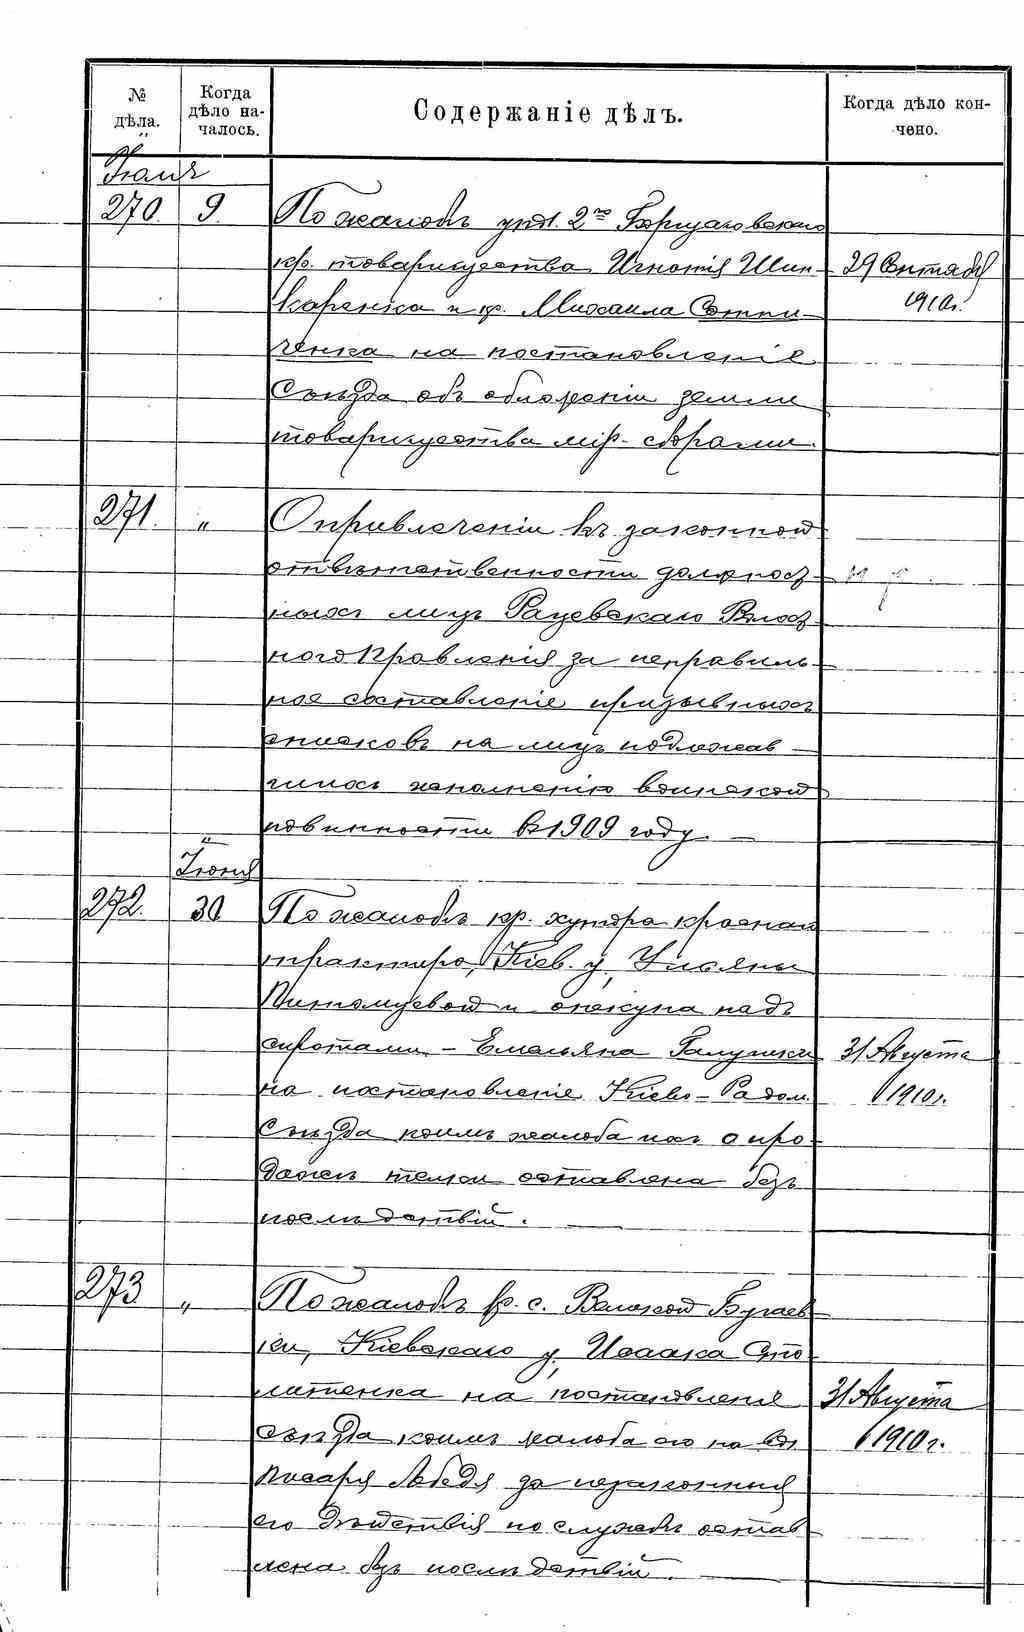 № дѣла.
Когда дѣло на-
чалось.
Содержаніе дѣлъ.
Когда дѣло кон-
чено.
Іюля
270. 9. По жалобѣ упол. 2го Борщаговскаго
кр. товарищества Игнатія Шин-
каренка и кр. Михаила
ченка на постановленіе
Съѣзда объ обложеніи земли
товарищества мір. сборами.
29 Октября
1910г.
271. „ О привлеченіи къ законной
отвѣтственности должност-
ныхъ лицъ Рацевскаго Волост-
ного Правленія за неправиль-
ное составленіе призывныхъ
списковъ на лицъ подлежав-
шихъ исполненію воинской
повинности въ 1909 году. —
„
Іюня
272. 30 По жалобѣ кр. хутора красный
трактиръ, Кіев. у, Ульяны
и опекуна надъ
сиротами – Емельяна Галушки
на постановленіе Кіево-Радом.
Съѣзда коимъ жалоба ихъ о про-
дажѣ телки оставлена безъ
послѣдствій.
31 Августа
1910г.
273 „ По жалобѣ кр. с. Великой Бугаев-
ки, Кіевскаго у, Исаака Спо-
латенка на постановленія
съѣзда коимъ жалоба его на вол.
писаря Лебедя за незаконныя
его дѣйствія по службѣ остав-
лена безъ послѣдствій.
31 Августа
1910 г.